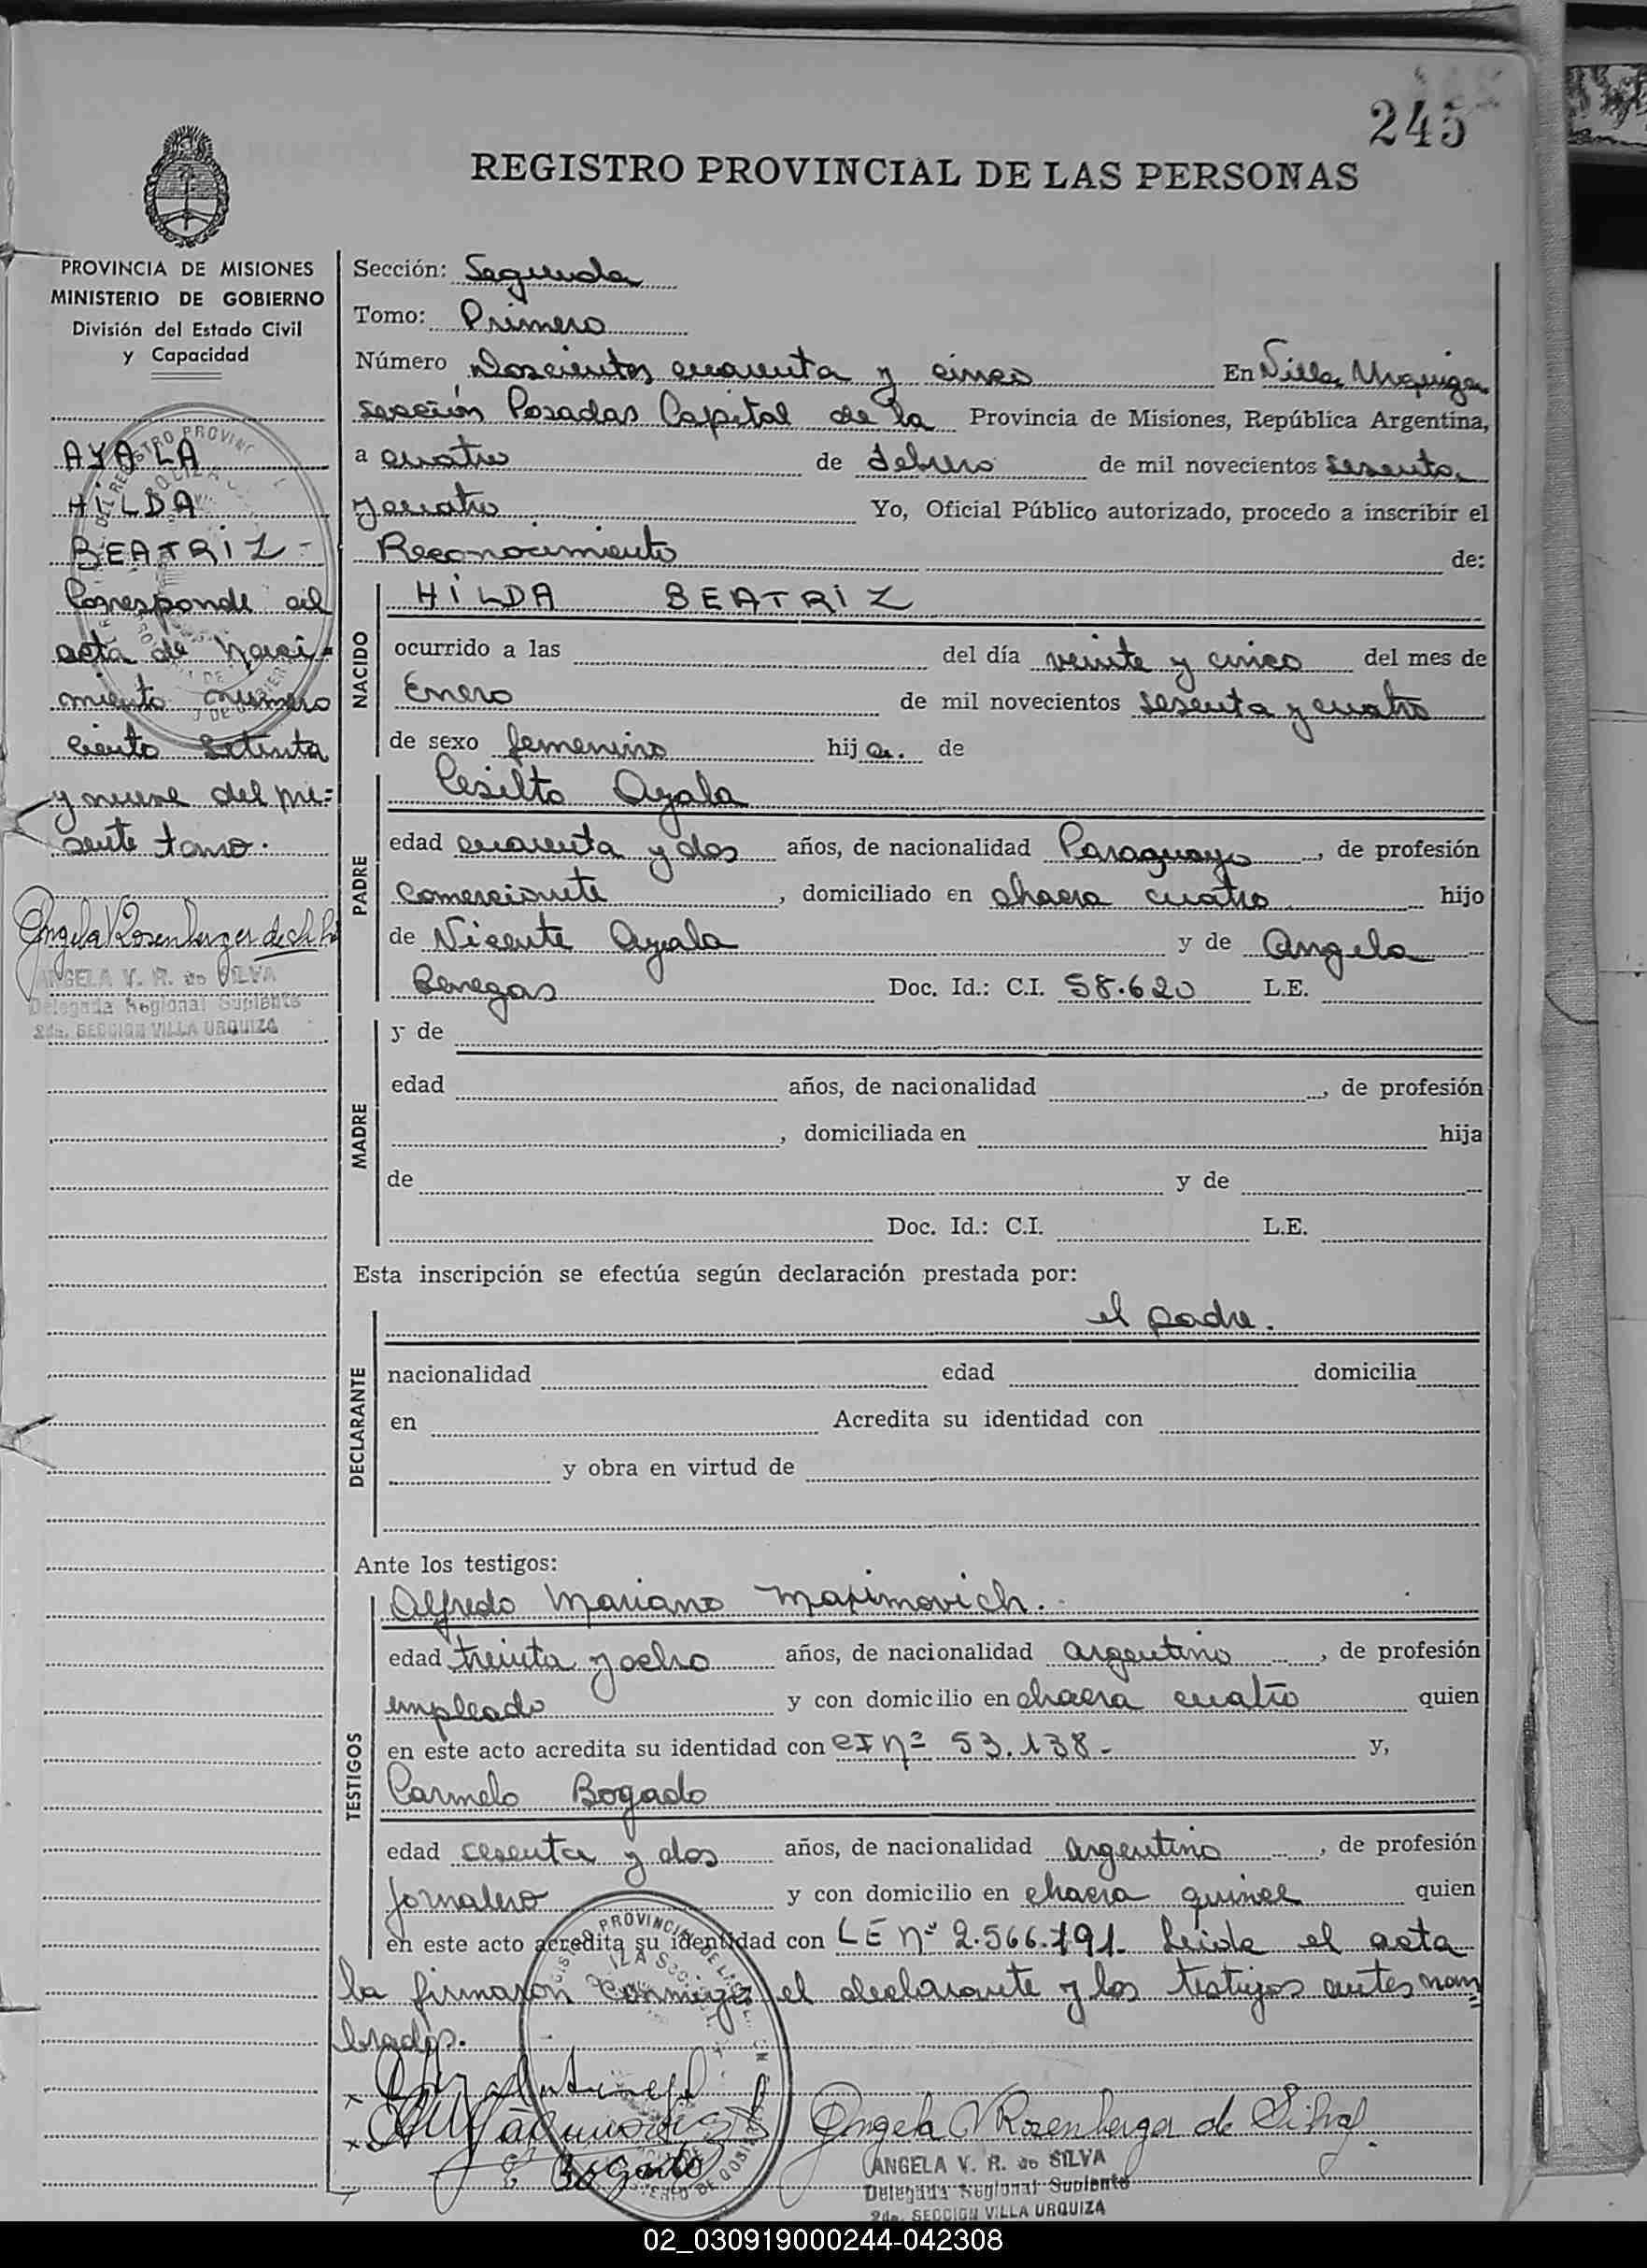 245
REGISTRO PROVINCIAL DE LAS PERSONAS
PROVINCIA DE MISIONES
MINISTERIO DE GOBIERNO
División del Estado Civil
y Capacidad
AYALA
HILDA
BEATRIZ -
Corresponde al
acta de naci-
miento número
ciento setenta
y nueve del pre=
sente tomo.
Angela V Rosenberger de
ANGELA V. R. de SILVA
Delegada Regional Suplente
2da. SECCION VILLA URQUIZA
Sección: Segunda
Tomo: Primero
Número Doscientos cuarenta y cinco En Villa Urquiza
sección Posadas Capital de la Provincia de Misiones, República Argentina,
a cuatro de febrero de mil novecientos sesenta
y cuatro Yo, Oficial Público autorizado, procedo a inscribir el
Reconocimiento de:
NACIDO
HILDA BEATRIZ
ocurrido a las del día veinte y cinco del mes de
Enero de mil novecientos sesenta y cuatro
de sexo femenino hija. de
PADRE
Cesilto Ayala
edad cuarenta y dos años, de nacionalidad Paraguayo, de profesión
comerciante, domiciliado en chacra cuatro hijo
de Vicente Ayala y de Angela
Benegas Doc. Id.: C.I. 58.620 L.E.
MADRE
y de
edad años, de nacionalidad , de profesión
, domiciliada en hija
de y de
Doc. Id.: C.I. L.E.
Esta inscripción se efectúa según declaración prestada por:
DECLARANTE
el padre.
nacionalidad edad domicilia
en Acredita su identidad con
y obra en virtud de
Ante los testigos:
TESTIGOS
Alfredo Mariano Maximovich.
edad treinta y ocho años, de nacionalidad argentino, de profesión
empleado y con domicilio en chacra cuatro quien
en este acto acredita su identidad con CI nº 53.138- y,
Carmelo Bogado
edad cesenta y dos años, de nacionalidad argentino, de profesión
jornalero y con domicilio en chacra quince quien
en este acto acredita su identidad con LE nº 2.566.191- Leida el acta
la firmaron conmigo el declarante y los testigos antes nom
brados.
C Bogado
Angela V Rosenberger de Silva
ANGELA V. R. de SILVA
Delegada Regional Suplente
2da. SECCION VILLA URQUIZA
02_030919000244-042308